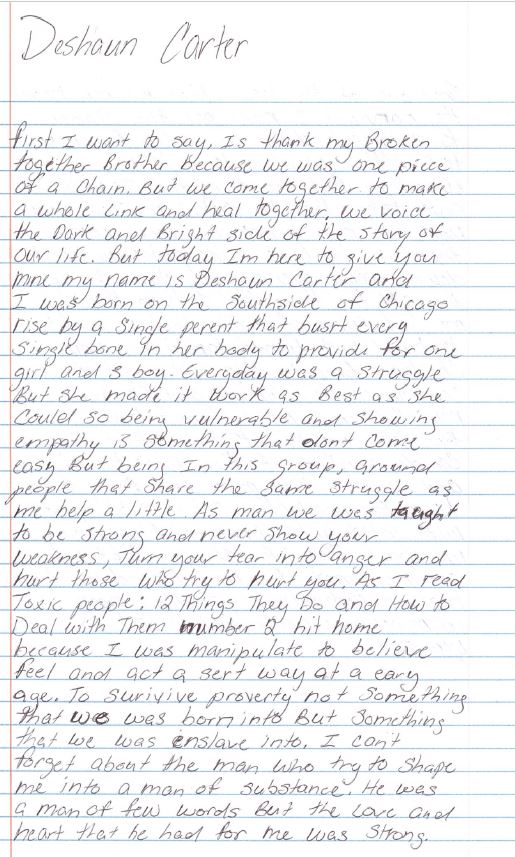 Deshaun Carter
first I want to say, Is thank my Broken
together Brother because we was one piece
of a Chain. But we come together to make
a whole Link and heal together, we voice
the Dark and Bright side of the story of
our life. But today Im here to give you
mine my name is Deshaun Carter and
I was born on the Southside of Chicago
rise by a single perent that busrt every
single bone In her body to provide for one
girl and 3 boy. Everyday was a struggle
But she made it work as Best as she
could so being vulnerable and showing
empathy is something that dont come
easy But being In this group, around
people that share the same struggle as
me help a little. As man we was taught
to be strong and never show your
weakness, Turn your tear into anger and
hurt those who try to hurt you. As I read
Toxic people: 12 Things They Do and How to
Deal with Them number 2 hit home
because I was manipulate to believe
feel and act a sert way at a eary
age. To surivive proverty not something
that we was born into But something
that we was enslave into. I can't
forget about the man who try to shape
me into a man of substance. He was
a man of few words But the Love and
heart that he had for me was strong.